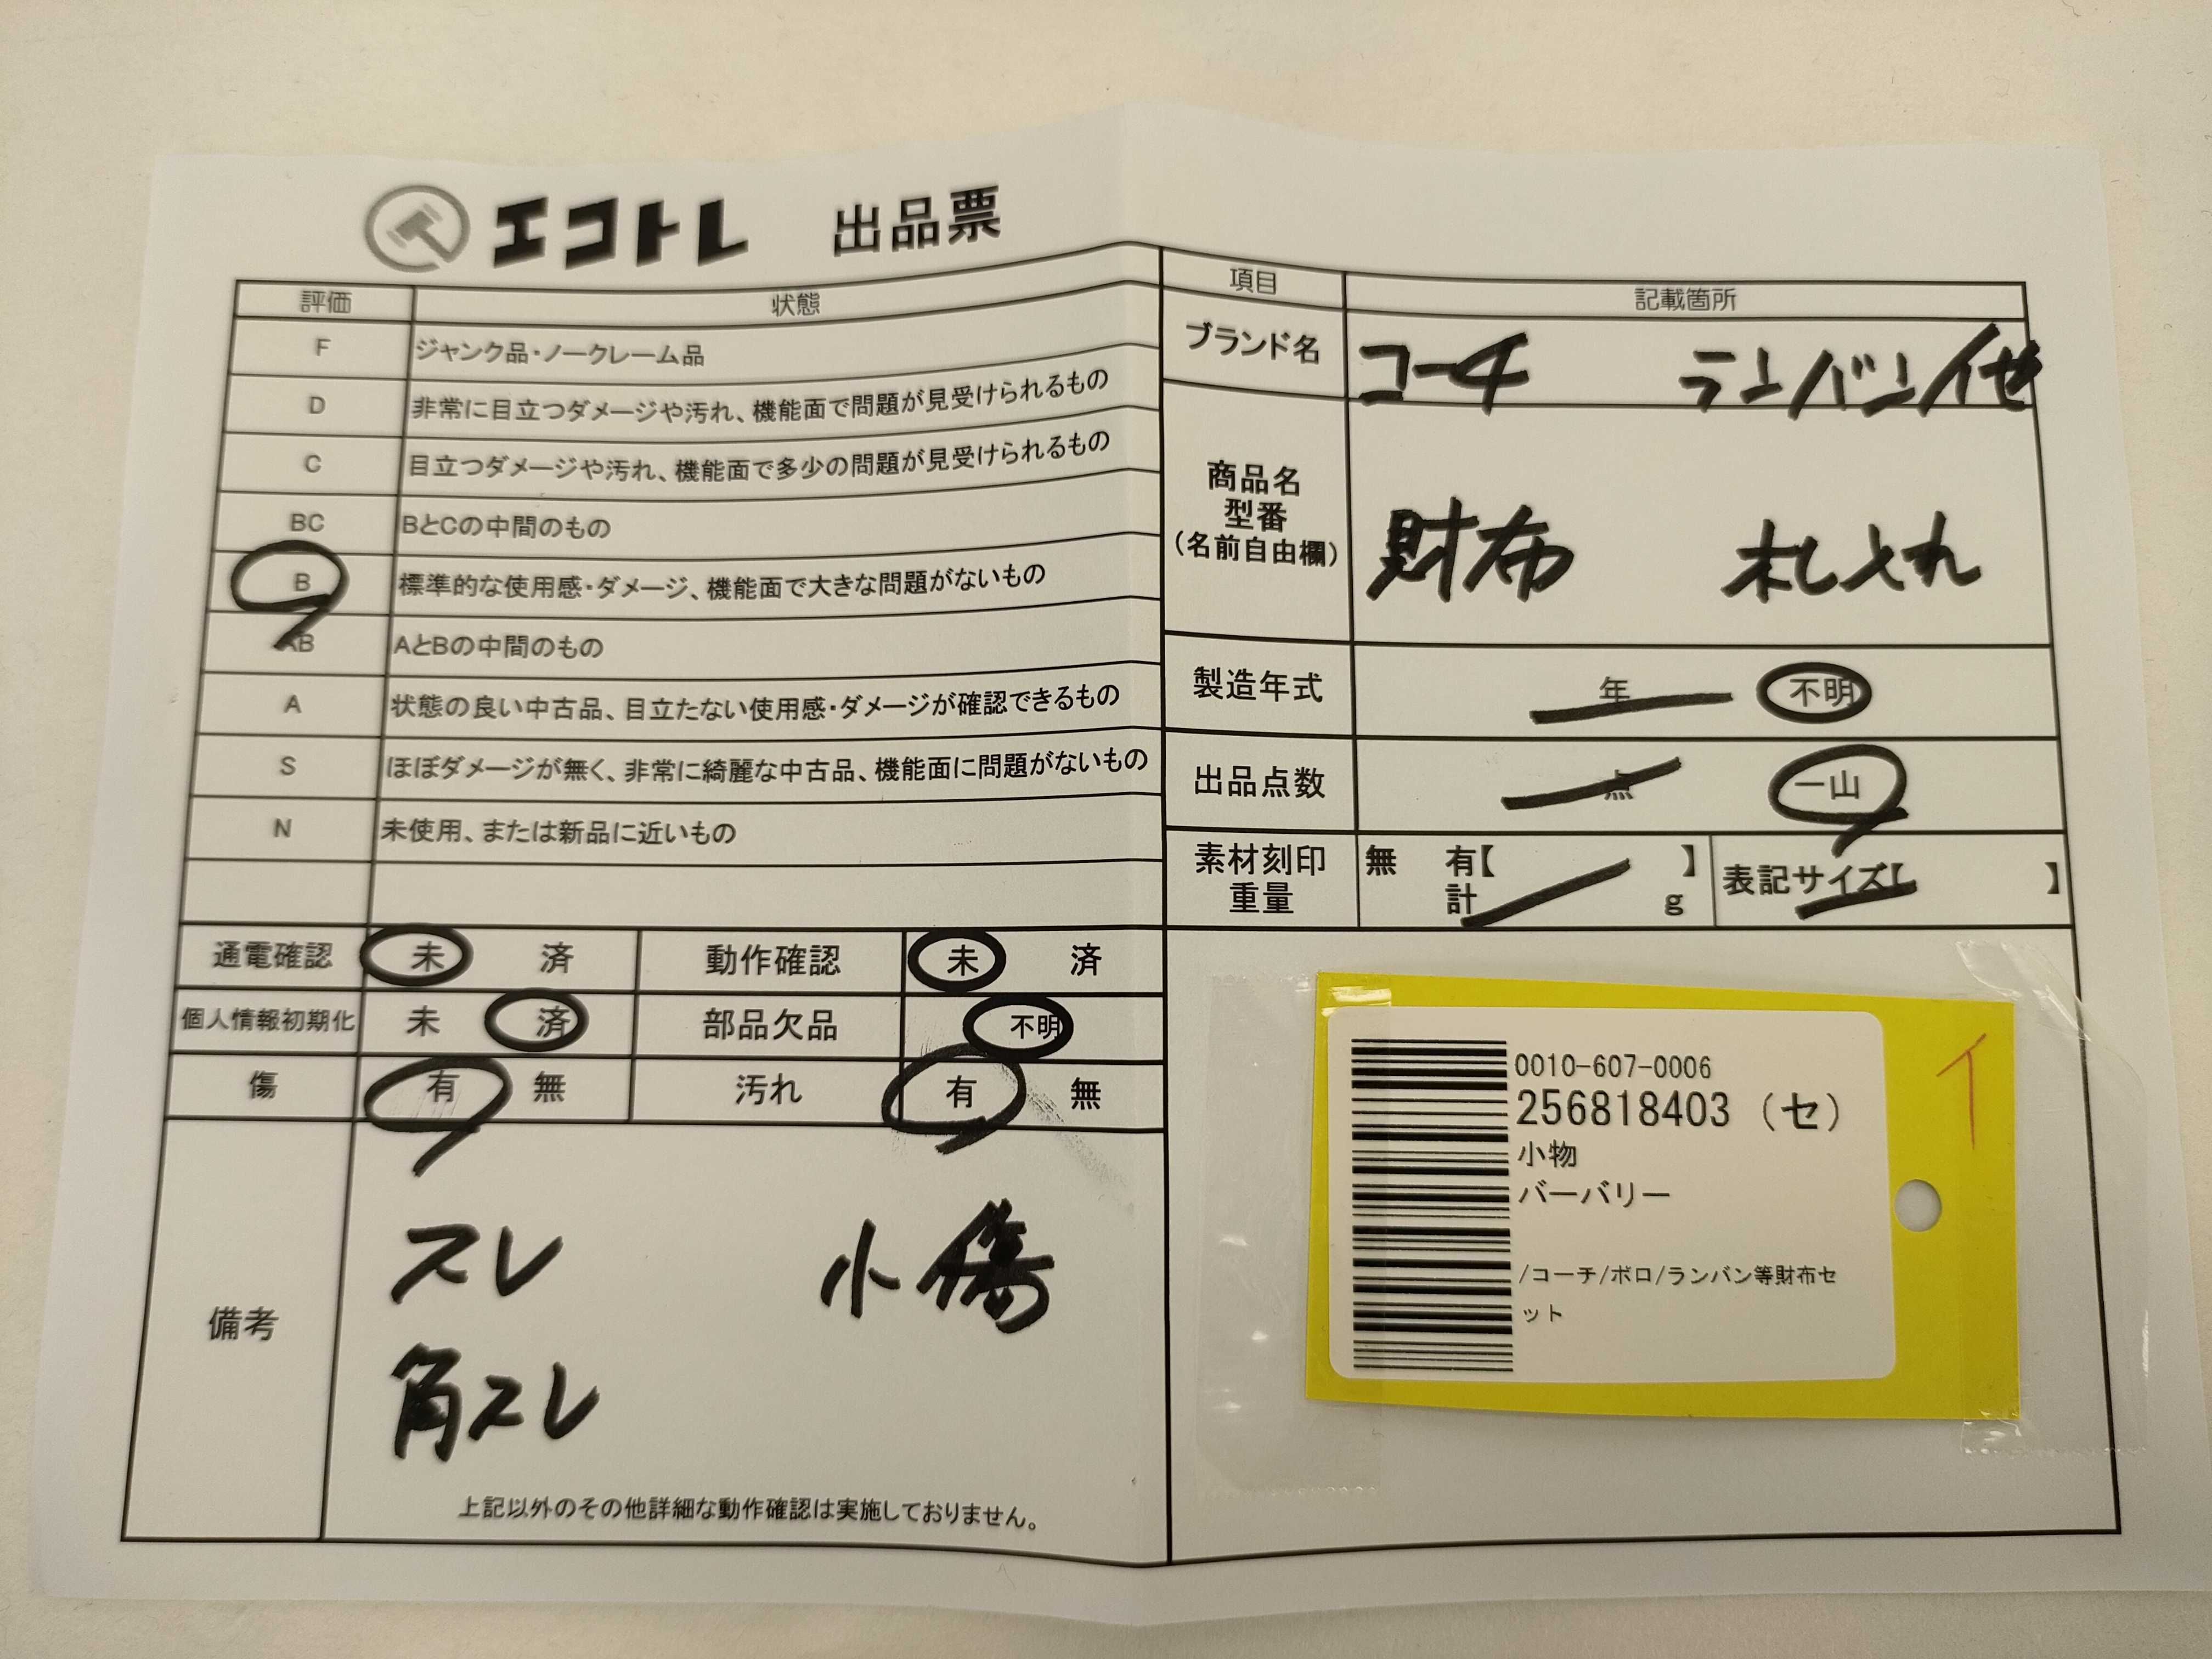 エコトレ 出品票
評価 状態
F ジャンク品・ノークレーム品
D 非常に目立つダメージや汚れ、機能面で問題が見受けられるもの
C 目立つダメージや汚れ、機能面で多少の問題が見受けられるもの
BC BとCの中間のもの
B 標準的な使用感・ダメージ、機能面で大きな問題がないもの
AB AとBの中間のもの
A 状態の良い中古品、目立たない使用感・ダメージが確認できるもの
S ほぼダメージが無く、非常に綺麗な中古品、機能面に問題がないもの
N 未使用、または新品に近いもの
通電確認 未 済 動作確認 未 済
個人情報初期化 未 済 部品欠品 不明
傷 有 無 汚れ 有 無
備考
スレ 小傷
角スレ
上記以外のその他詳細な動作確認は実施しておりません。
項目 記載箇所
ブランド名 コーチ ランバン/他
商品名
型番
(名前自由欄)
財布 札入れ
製造年式 年 不明
出品点数 点 一山
素材刻印 無 有【 】
重量 計 g
表記サイズ【 】
0010-607-0006
256818403 (セ)
小物
バーバリー
/コーチ/ボロ/ランバン等財布セ
ット
イ